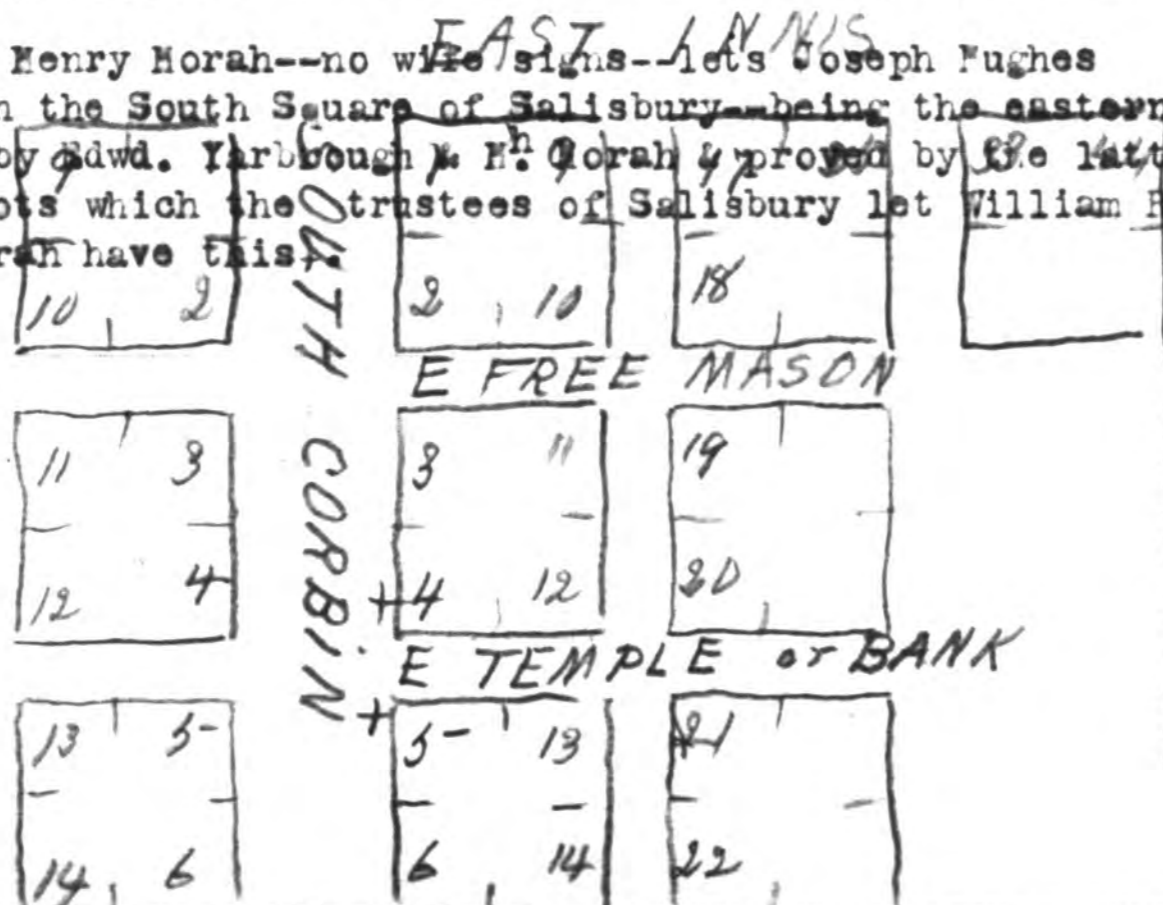 EAST INNIS
Henry Horah--no wife signs--let's Joseph Hughes
the South Square of Salisbury--being the eastern
by Edwd. Yarbrough & Hh Horah & proved by the latt
ots which the trustees of Salisbury let William
rah have this.
SOUTH CORBIN
9 1 9 17
10 2 2 10 18
E FREE MASON
11 3 3 11 19
12 4 +4 12 20
E TEMPLE or BANK
+
13 5 5 13 21
14 6 6 14 22